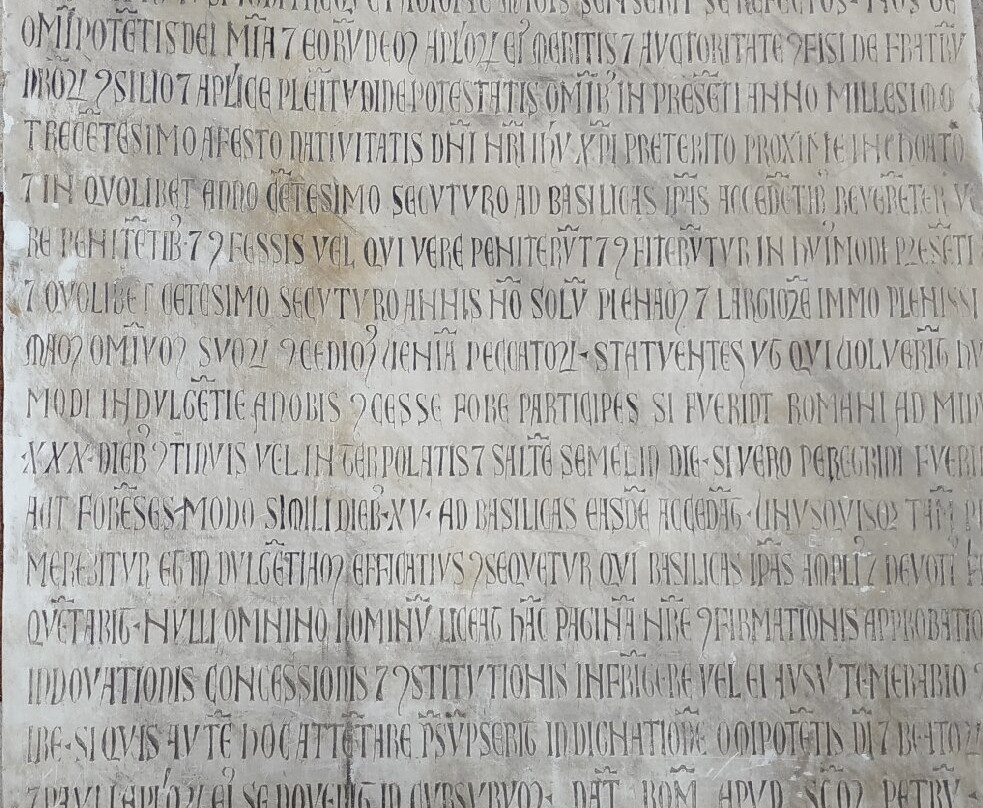 OMIPOTETIS DEI MIA 7 EORVDEM APLOR EI MERITIS 7 AVCTORITATE 9FISI DE FRATRV
NROR 9SILIO 7 APLICE PLEITVDINE POTESTATIS OMIB IN PRESETI ANNO MILLESIMO
TRECETESIMO A FESTO NATIVITATIS DNI NRI IHV XPI PRETERITO PROXIME INCHOATO
7 IN QVOLIBET ANNO CETESIMO SECVTVRO AD BASILICAS IPAS ACCEDETIB REVERETER
RE PENITETIB 7 9FESSIS VEL QVI VERE PENITEBVT 7 9FITEBVTVR IN HVIMODI PRESETI
7 QVOLIBET CETESIMO SECVTVRO ANNIS NO SOLV PLENAM 7 LARGIORE IMMO PLENISSI
MAM OMIVM SVOR 9CEDIM VENIA PECCATOR · STATVENTES VT QVI VOLVERIT HV
MODI INDVLGETIE A NOBIS 9CESSE FORE PARTICIPES SI FVERINT ROMANI AD MIN
·XXX· DIEB 9TINVIS VEL INTERPOLATIS 7 SALTE SEMEL IN DIE · SI VERO PEREGRINI FVERI
AUT FORESES · MODO SIMILI DIEB · XV · AD BASILICAS EASDE ACCEDAT · UNVSQVISQ TAM
MEREBITVR ET INDVLGETIAM EFFICATIVS 9SEQVETVR QVI BASILICAS IPAS AMPLI 7 DEVOTI
QVETABIT · NVLLI OMNINO HOMINV LICEAT HAC PAGINA NRE 9FIRMATIONIS APPROBATIO
INNOVATIONIS CONCESSIONIS 7 9STITVTIONIS INFRIGERE VEL EI AVSV TEMERARIO 9
IRE · SI QVIS AVTE HOC ATTETARE PSVPSERIT INDIGNATIONE OMIPOTETIS DI 7 BEATOR
7 PAVLI APLOR EI SE NOVERIT INCVRSVRVM · DAT ROM APVD SCM PETRV ·